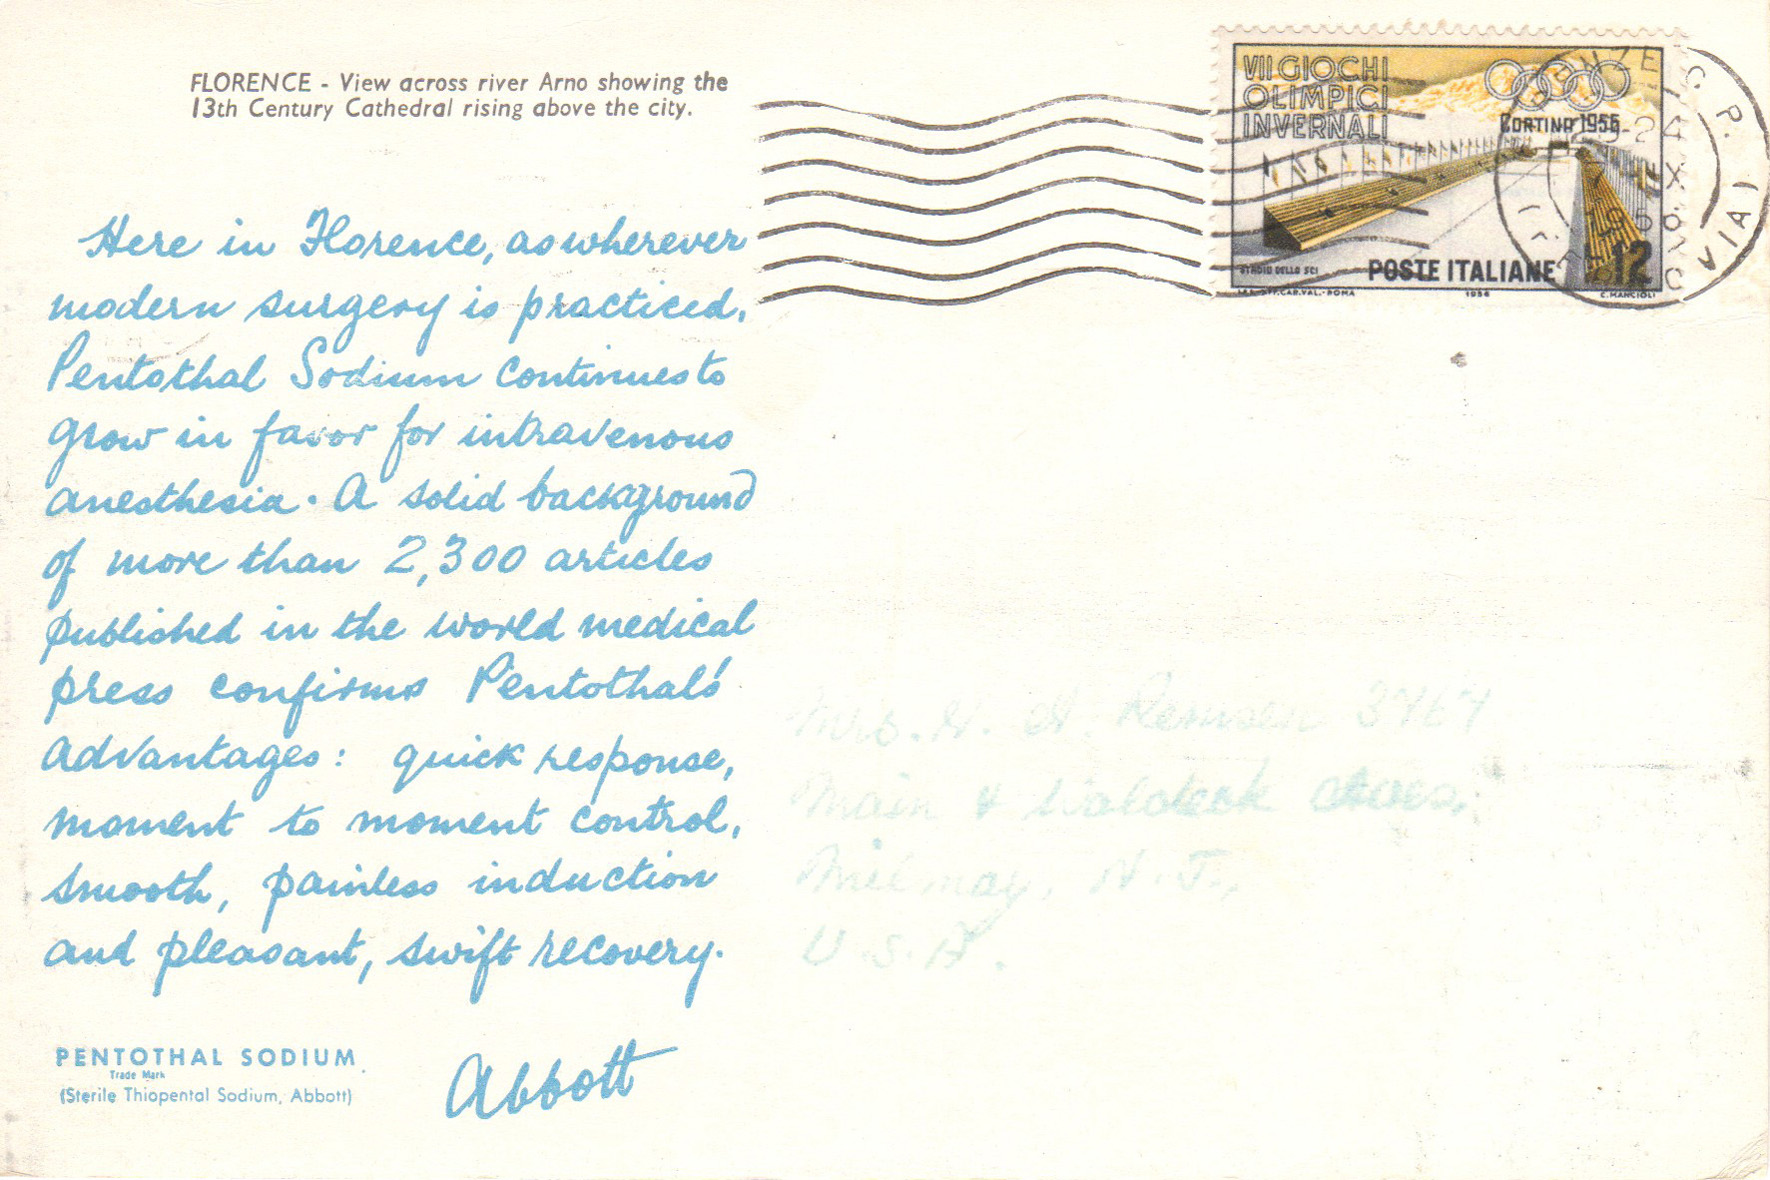 FLORENCE - View across river Arno showing the
13th Century Cathedral rising above the city.
Here in Florence, as wherever
modern surgery is practiced,
Pentothal Sodium continues to
grow in favor for intravenous
anesthesia. A solid background
of more than 2,300 articles
published in the world medical
press confirms Pentothal's
advantages: quick response,
moment to moment control,
smooth, painless induction
and pleasant, swift recovery.
Abbott
PENTOTHAL SODIUM
Trade Mark
(Sterile Thiopental Sodium, Abbott)
VII GIOCHI
OLIMPICI
INVERNALI
CORTINA 1956
STADIO DELLO SCI
POSTE ITALIANE 12
1956
C. MANCIOLI
Mrs. H. A. Remsen
Main &
Milmay, N. J.,
U.S.A.